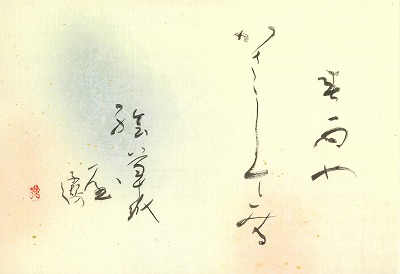 春雨や
かささして見る
絵草紙
屋